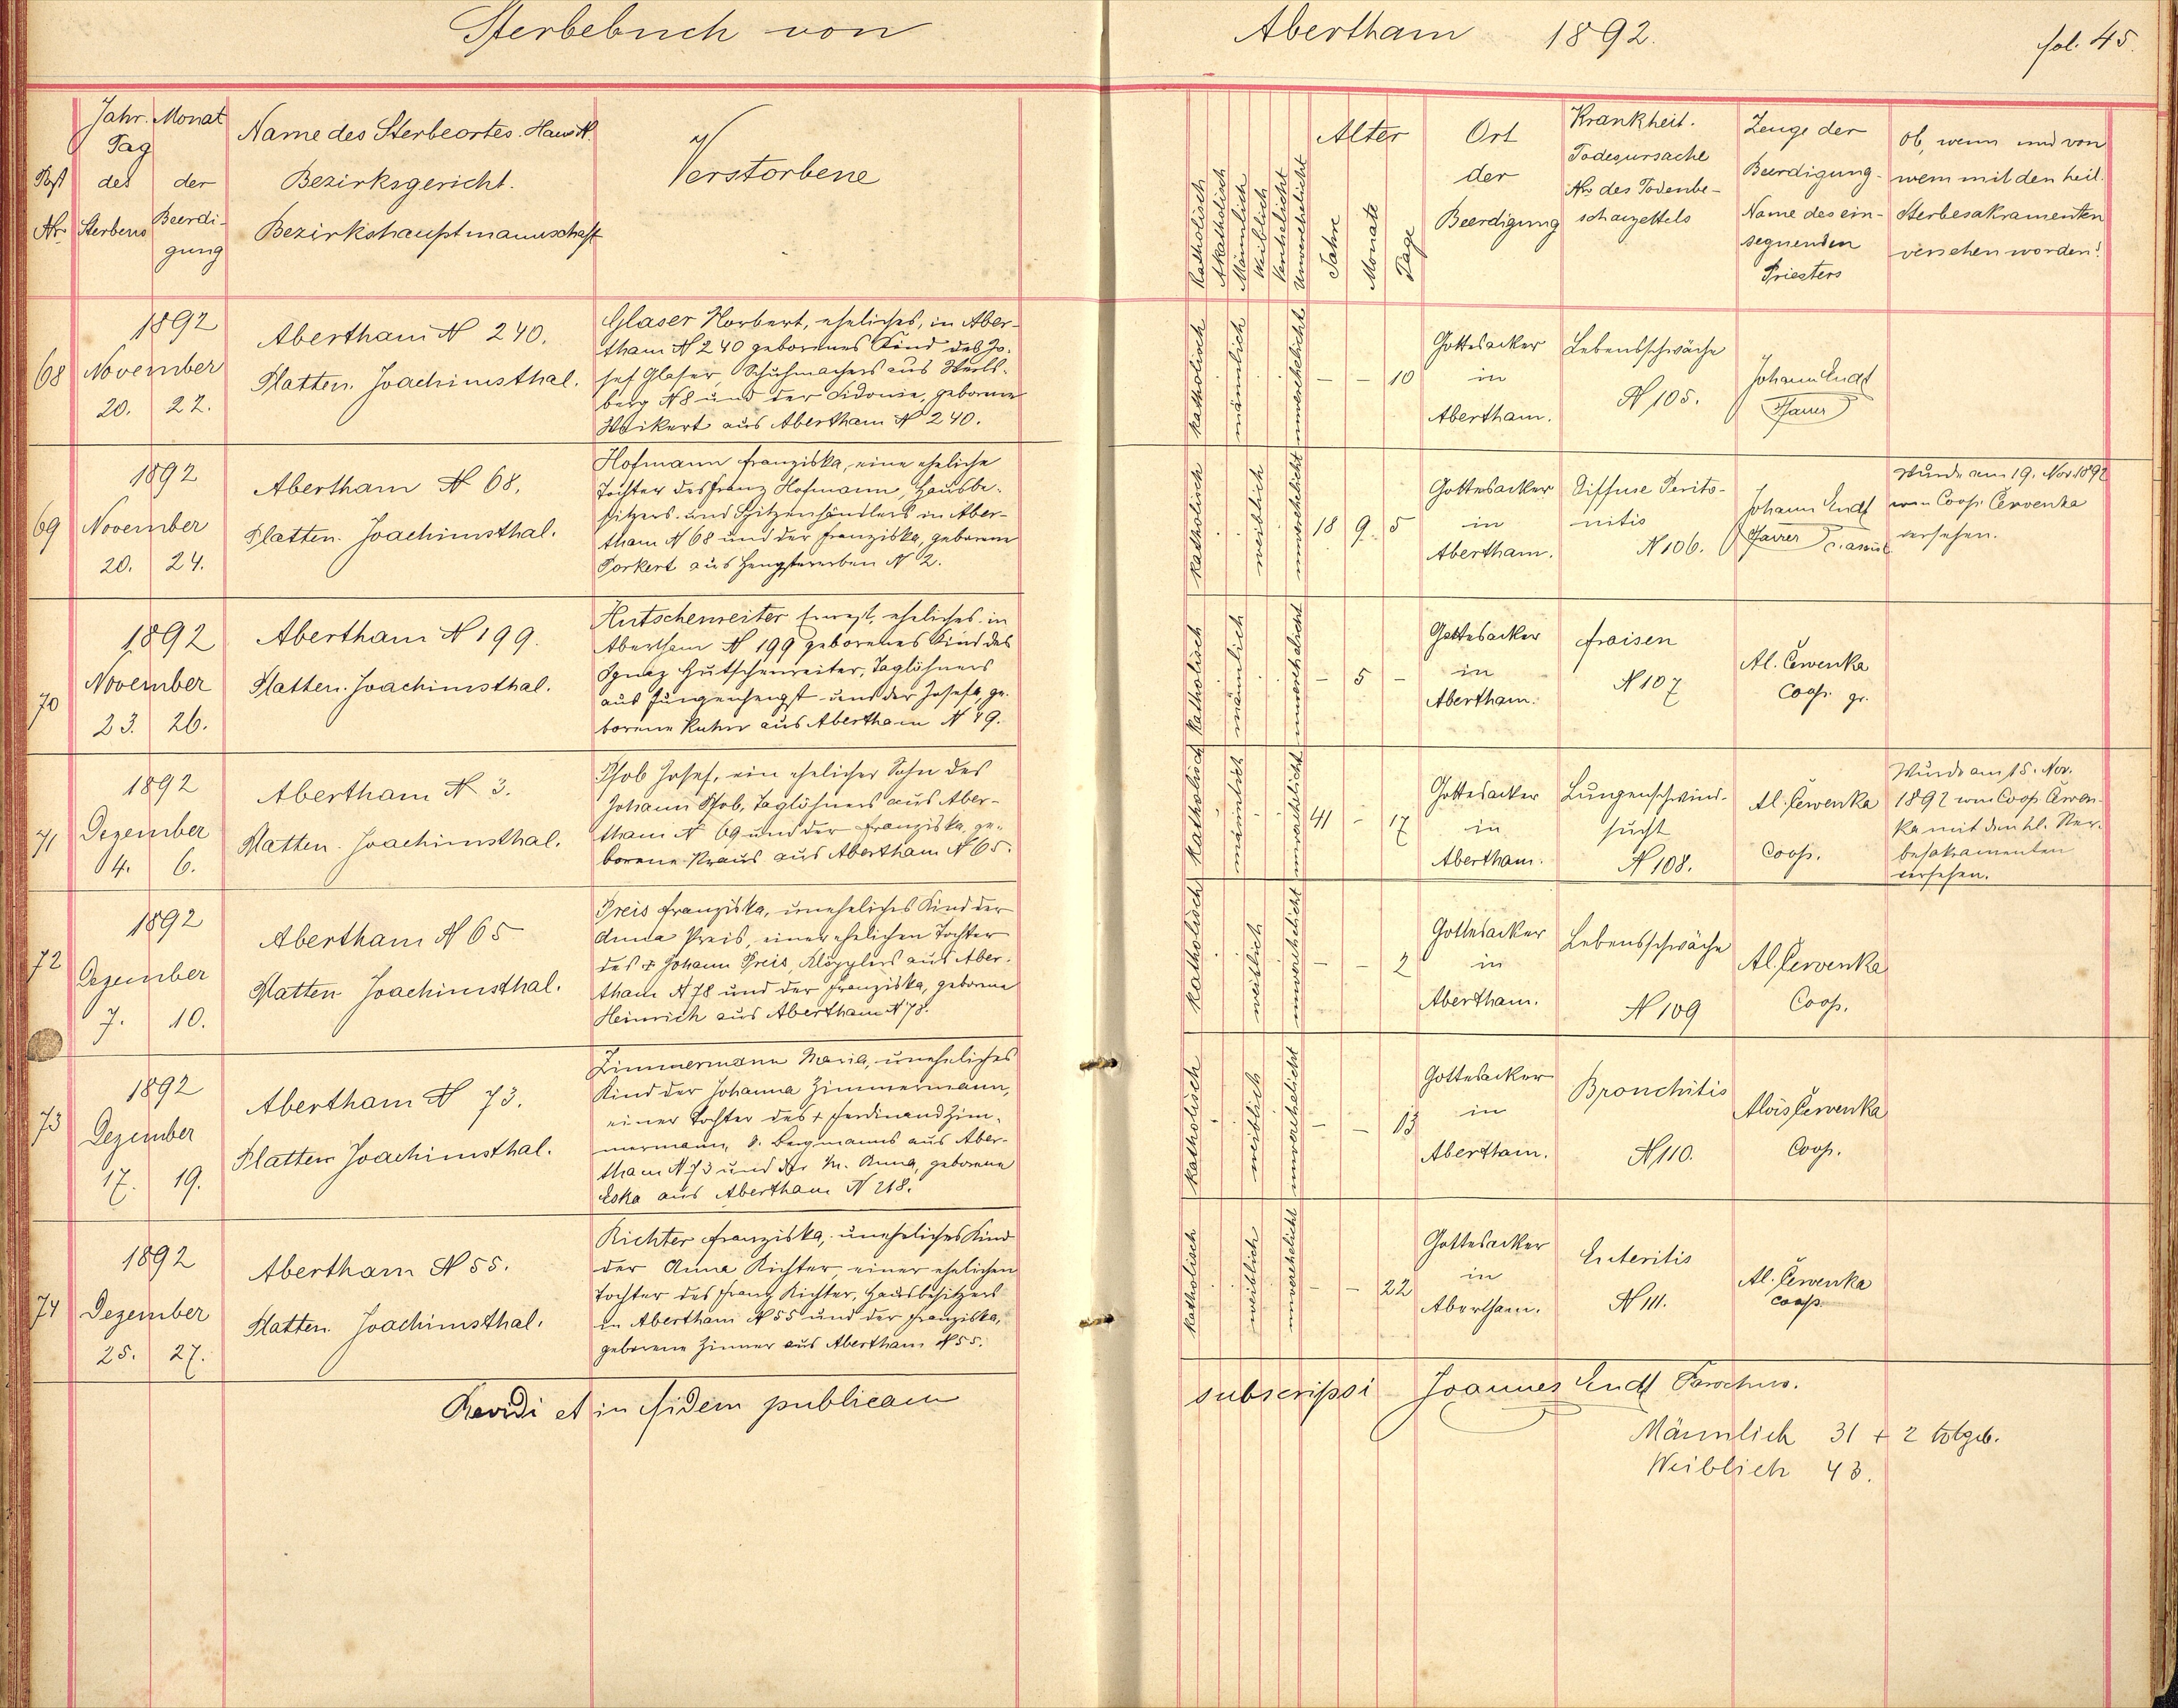 Sterbebuch von Abertham 1892. fol. 45.
Post Nr.
Jahr. Monat
Tag
des Sterbens
der Beerdi-
gung
Name des Sterbeortes. Haus N.
Bezirksgericht.
Bezirkshauptmannschaft
Verstorbene
Katholisch
Akatholisch
Männlich
Weiblich
Verehelicht
Unverehelicht
Alter
Jahre
Monate
Tage
Ort
der
Beerdigung
Krankheit.
Todesursache
Nr. des Todenbe-
schauzettels
Zeuge der
Beerdigung-
Name des ein-
segnenden
Priesters
Ob, wenn und von
wem mit den heil.
Sterbesakramenten
versehen worden?
68
1892
November
20. 22.
Abertham N 240.
Platten. Joachimsthal.
Glaser Norbert, eheliches, in Aber-
tham N 240 geborenes Kind des Jo-
sef Glaser, Schuhmachers aus Werls-
berg N 8 und der Sidonie, geborene
Weikert aus Abertham N 240.
katholisch
männlich
unverehelicht
- - 10
Gottesacker
in
Abertham.
Lebensschwäche
N 105.
Johann Endt
Pfarrer
69
1892
November
20. 24.
Abertham N 68.
Platten. Joachimsthal.
Hofmann Franziska, eine eheliche
Tochter des Franz Hofmann, Hausbe-
sitzers und Spitzenhändlers in Aber-
tham N 68 und der Franziska, geborene
Porkert aus Hengstererben N 2.
katholisch
weiblich
unverehelicht
18 9. 5
Gottesacker
in
Abertham.
Diffuse Perito-
nitis
N 106.
Johann Endt
Pfarrer
Wurde am 19. Nov 1892
von Coop. Červenka
versehen.
70
1892
November
23. 26.
Abertham N 199.
Platten. Joachimsthal.
Hutschenreiter Ernest, eheliches in
Abertham N 199 geborenes Kind des
Ignaz Hutschenreiter, Taglöhners
aus Jungenhengst und der Josefa, ge-
borene aus Abertham N 49.
katholisch
männlich
unverehelicht
- 5 -
Gottesacker
in
Abertham.
Fraisen
N 107
Al. Červenka
Coop. gr.
71
1892
Dezember
4. 6.
Abertham N 3.
Platten. Joachimsthal.
Pfob Josef, ein ehelicher Sohn des
Johann Pfob, Taglöhners aus Aber-
tham N 69 und der Franziska, ge-
borene Kraus aus Abertham N 65.
katholisch
männlich
unverehelicht
41 - 17
Gottesacker
in
Abertham.
Lungenschwind-
sucht
N 108.
Al. Červenka
Coop.
Wurde am 15. Nov.
1892 von Coop Červen-
ka mit den hl. Ster-
besakramenten
versehen.
72
1892
Dezember
7. 10.
Abertham N 65
Platten Joachimsthal.
Preis Franziska, uneheliches Kind der
Anna Preis, einer ehelichen Tochter
des + Johann Preis, Klöpplers aus Aber-
tham N 78 und der Franziska, geborene
Heinrich aus Abertham N 78.
katholisch
weiblich
unverehelicht
- - 2
Gottesacker
in
Abertham.
Lebensschwäche
N 109
Al. Červenka
Coop.
73
1892
Dezember
17. 19.
Abertham N 73.
Platten Joachimsthal.
Zimmermann Maria, uneheliches
Kind der Johanna Zimmermann,
einer Tochter des + Ferdinand Zim-
mermann, Bergmanns aus Aber-
tham N 73 und der M. Anna, geborene
Eska aus Abertham N 218.
katholisch
weiblich
unverehelicht
- - 13
Gottesacker
in
Abertham.
Bronchitis
N 110.
Alois Červenka
Coop.
74
1892
Dezember
25. 27.
Abertham N 55.
Platten. Joachimsthal.
Richter Franziska, uneheliches Kind
der Anna Richter, einer ehelichen
Tochter des Franz Richter, Hausbesitzers
in Abertham N 55 und der Franziska,
geborene Zinner aus Abertham N 55.
katholisch
weiblich
unverehelicht
- - 22
Gottesacker
in
Abertham.
Enteritis
N 111.
Al. Červenka
Coop.
Revidi et in fidem publicam subscripsi Joannes Endt Parochus.
Männlich 31 + 2 totgeb.
Weiblich 43.